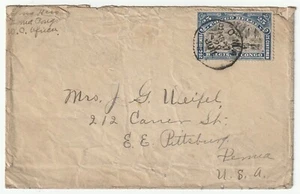 W. C. Africa
25
25
CONGO
Mrs. J. G. Weifel,
212 Carren St.
E. E. Pittsburg
Penna
U. S. A.